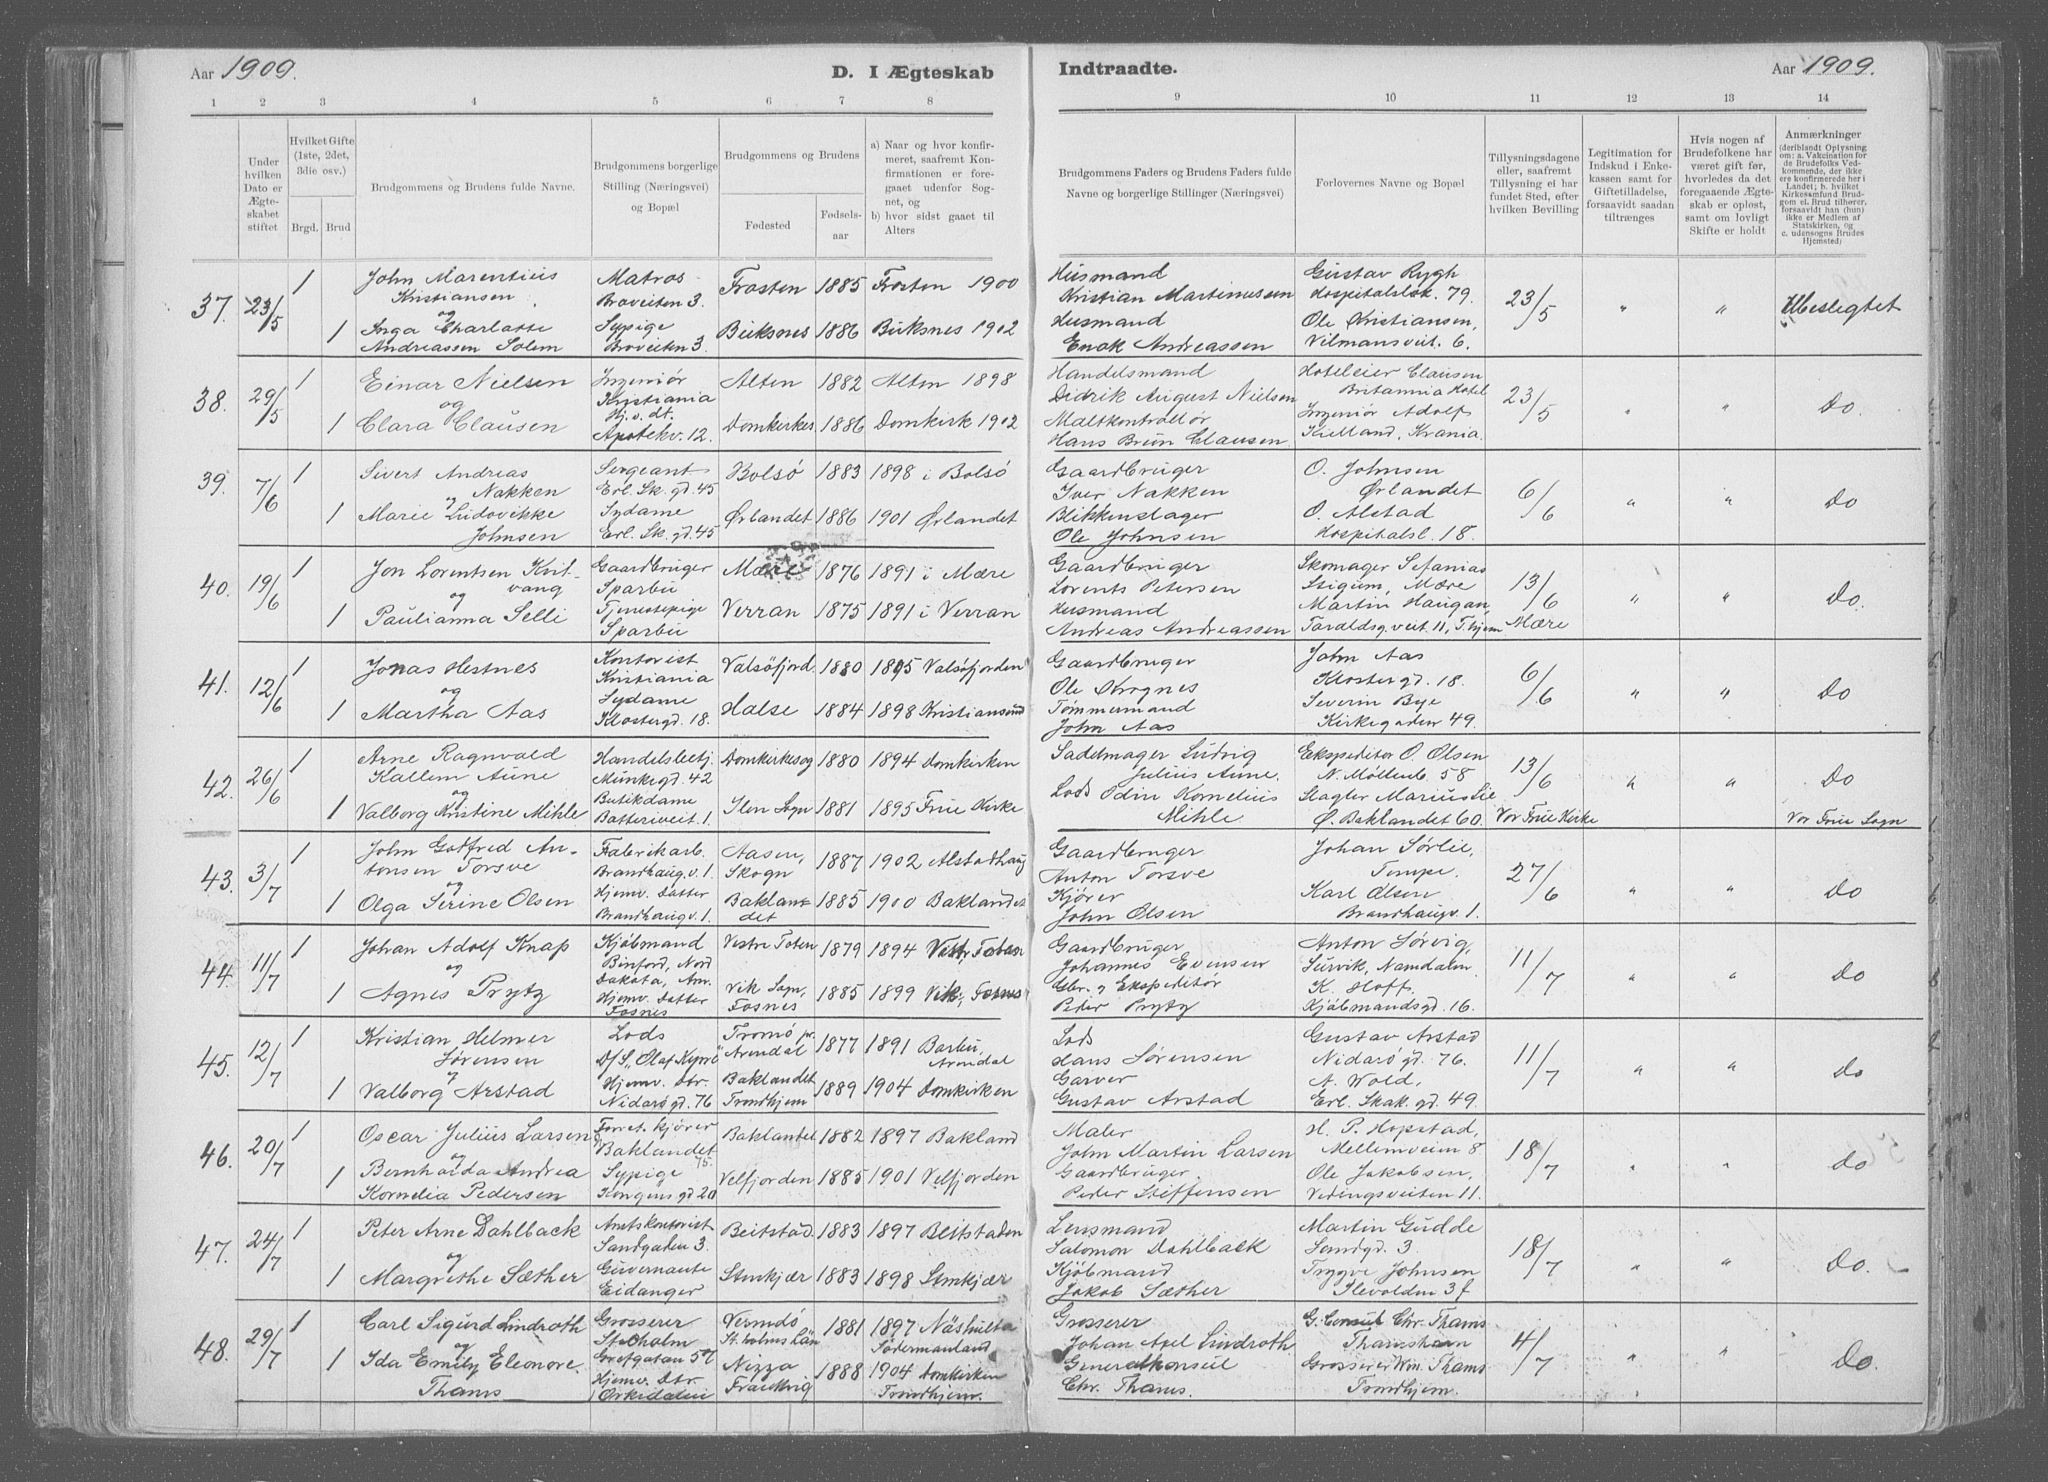 Aar 1909.
D. I Ægteskab
Indtraadte.
Aar 1909.
1 2 3 4 5 6 7 8
9 10 11 12 13 14
Under hvilken Dato er Ægteskabet stiftet
Hvilket Gifte (1ste, 2det, 3die osv.)
Brgd. Brud
Brudgommens og Brudens fulde Navne.
Brudgommens borgerlige Stilling (Næringsvei) og Bopæl
Brudgommens og Brudens
Fødested
Fødselsaar
a) Naar og hvor konfirmeret, saafremt Konfirmationen er foregaaet udenfor Sognet, og
b) hvor sidst gaaet til Alters
Brudgommens Faders og Brudens Faders fulde Navne og borgerlige Stillinger (Næringsvei)
Forlovernes Navne og Bopæl
Tillysningsdagene eller, saafremt Tillysning ei har fundet Sted, efter hvilken Bevilling
Legitimation for Indskud i Enkekassen samt for Giftetilladelse, forsaavidt saadan tiltrænges
Hvis nogen af Brudefolkene har været gift før, hvorledes da det foregaaende Ægteskab er opløst, samt om lovligt Skifte er holdt
Anmærkninger (deriblandt Oplysning om: a. Vakcination for de Brudefolks Vedkommende, der ikke ere konfirmerede her i Landet; b. hvilket Kirkesamfund Brudgom el. Brud tilhører, forsaavidt han (hun) ikke er Medlem af Statskirken, og c. udensogns Brudes Hjemsted)
37. 23/5 1 John Marentius Kristiansen Matros Braveiten 3. Frosten 1885 Frosten 1900
og
1 Inga Charlotte Andreassen Solem Sypige Braveiten 3. Buksnes 1886 Buksnes 1902
Husmand Kristian Martinussen
Husmand Enok Andreassen
Gustav Rygh Hospitalsløk. 79.
Ole Kristiansen, Vilmansveit. 6.
23/5 " " Ubeslegtet
38. 29/5 1 Einar Nielsen Ingeniør Kristiania Alten 1882 Alten 1898
og
1 Clara Clausen Hj. v. dt. Apotekv. 12. Domkirkes 1886 Domkirk 1902
Handelsmand Didrik August Nielsen
Maltkontrollør Hans Brun Clausen
Hoteleier Clausen Britannia Hotel
Ingeniør Adolf Kielland, Krania.
23/5 " " Do.
39. 7/6 1 Sivert Andreas Nakken Sergeant Erl. Sk. gd. 45 Bolsø 1883 1898 i Bolsø
og
1 Marie Ludovikke Johnsen Sydame Erl. Sk. gd. 45 Ørlandet 1886 1901 Ørlandet
Gaardbruger Iver Nakken
Blikkenslager Ole Johnsen
O. Johnsen Ørlandet
O. Alstad Hospitalsl. 18.
6/6 " " Do
40. 19/6 1 Jon Lorentsen Kvitvang Gaardbruger Sparbu Mære 1876 1891 i Mære
og
1 Paulianna Selli Tjenestepige Sparbu Verran 1875 1891 i Verran
Gaardbruger Lorents Petersen
Husmand Andreas Andreassen
Skomager Sefanias Stigum, Mære
Martin Haugan, Taraldsg.veit. 11, T.hjem
13/6 Mære " " Do.
41. 12/6 1 Jonas Hestnes Kontorist Kristiania Valsøfjord 1880 1895 Valsøfjorden
og
1 Martha Aas Sydame Klostergd. 18. Halse 1884 1898 Kristiansund
Gaardbruger Ole Krognes
Tømmermand John Aas
John Aas Klostergd. 18.
Severin Bye Kirkegaden 49.
6/6 " " Do
42. 26/6 1 Arne Ragnvald Kallem Aune Handelsbetj. Munkegd. 42 Domkirkesog 1880 1894 Domkirken
og
1 Valborg Kristine Mihle Butikdame Batteriveit. 1. Ilen Sogn 1881 1895 Frue Kirke
Sadelmager Ludvig Julius Aune.
Lods Odin Kornelius Mihle
Ekspeditør O. Olsen N. Møllenb. 58
Slagter Marius Lie Ø. Baklandet 60.
13/6 Vor Frue Kirke " " Do Vor Frue Sogn
43. 3/7 1 John Gotfred Antonsen Torsve Fabrikarb. Brandhaug.v. 1. Aasen, Skogn 1887 1902 Alstadhaug
og
1 Olga Serine Olsen Hjemv. Datter Brandhaugv. 1. Baklandet 1885 1900 Baklandet
Gaardbruger Anton Torsve
Kjører John Olsen
Johan Sørlie, Tempe.
Karl Olsen Brandhaugv. 1.
27/6 " " Do
44. 11/7 1 Johan Adolf Knap Kjøbmand Binford, Nord Dakota, Am. Vestre Toten 1879 1894 Vestr. Toten
og
1 Agnes Prytz Hjemv. Datter Fosnes Vik Sogn, Fosnes 1885 1899 Vik, Fosnes
Gaardbruger Johannes Evensen
Gbr. og Ekspeditør Peter Prytz
Anton Sørvig, Survik, Namdalen
K. Hoff, Kjøbmandsgd. 16.
11/7 " " Do
45. 12/7 1 Kristian Helmer Sørensen Lods D/S „Olaf Kyrre" Tromø pr. Arendal 1877 1891 Barbu, Arendal
og
1 Valborg Arstad Hjemv. Dtr. Nidarøgd. 76 Baklandet Trondhjem 1889 1904 Domkirken
Lods Hans Sørensen
Garver Gustav Arstad
Gustav Arstad Nidarøgd. 76.
A. Wold, Erl. Skak. gd. 49.
11/7 " " Do
46. 20/7 1 Oscar Julius Larsen Forret. kjører Baklandet 75. Baklandet 1882 1897 Bakland
og
1 Bernharda Andrea Kornelia Pedersen Sypige Kongens gd 20 Velfjorden 1885 1901 Velfjorden
Maler John Martin Larsen
Gaardbruger Peder Steffensen
H. P. Hopstad, Mellemveien 8
Ole Jakobsen, Vedingsveiten 11.
18/7 " " Do
47. 24/7 1 Peter Arne Dahlback Amtskontorist Sandgaden 3. Beitstad 1883 1897 Beitstaden
og
1 Margrethe Sæther Guvernante Eidanger Stenkjær 1883 1898 Stenkjær
Lensmand Salomon Dahlback
Kjøbmand Jakob Sæther
Martin Gudde Sandgd. 3
Trygve Johnsen Ilevolden 3 f
18/7 " " Do.
48. 29/7 1 Carl Sigurd Lindroth Grosserer Stocholm Grefgatan 57 Vermdö St.holms Län 1881 1897 Näshulta Södermanland
og
1 Ida Emily Eleonore Thams Hjemv. Dtr. Orkedalen Nizza Frankrig 1888 1904 Domkirken Trondhjem.
Grosserer Johan Axel Lindroth
Generalkonsul Chr. Thams.
G. Consul Chr. Thams Thamshavn
Grosserer Wm. Thams Trondhjem.
4/7 " " Do.